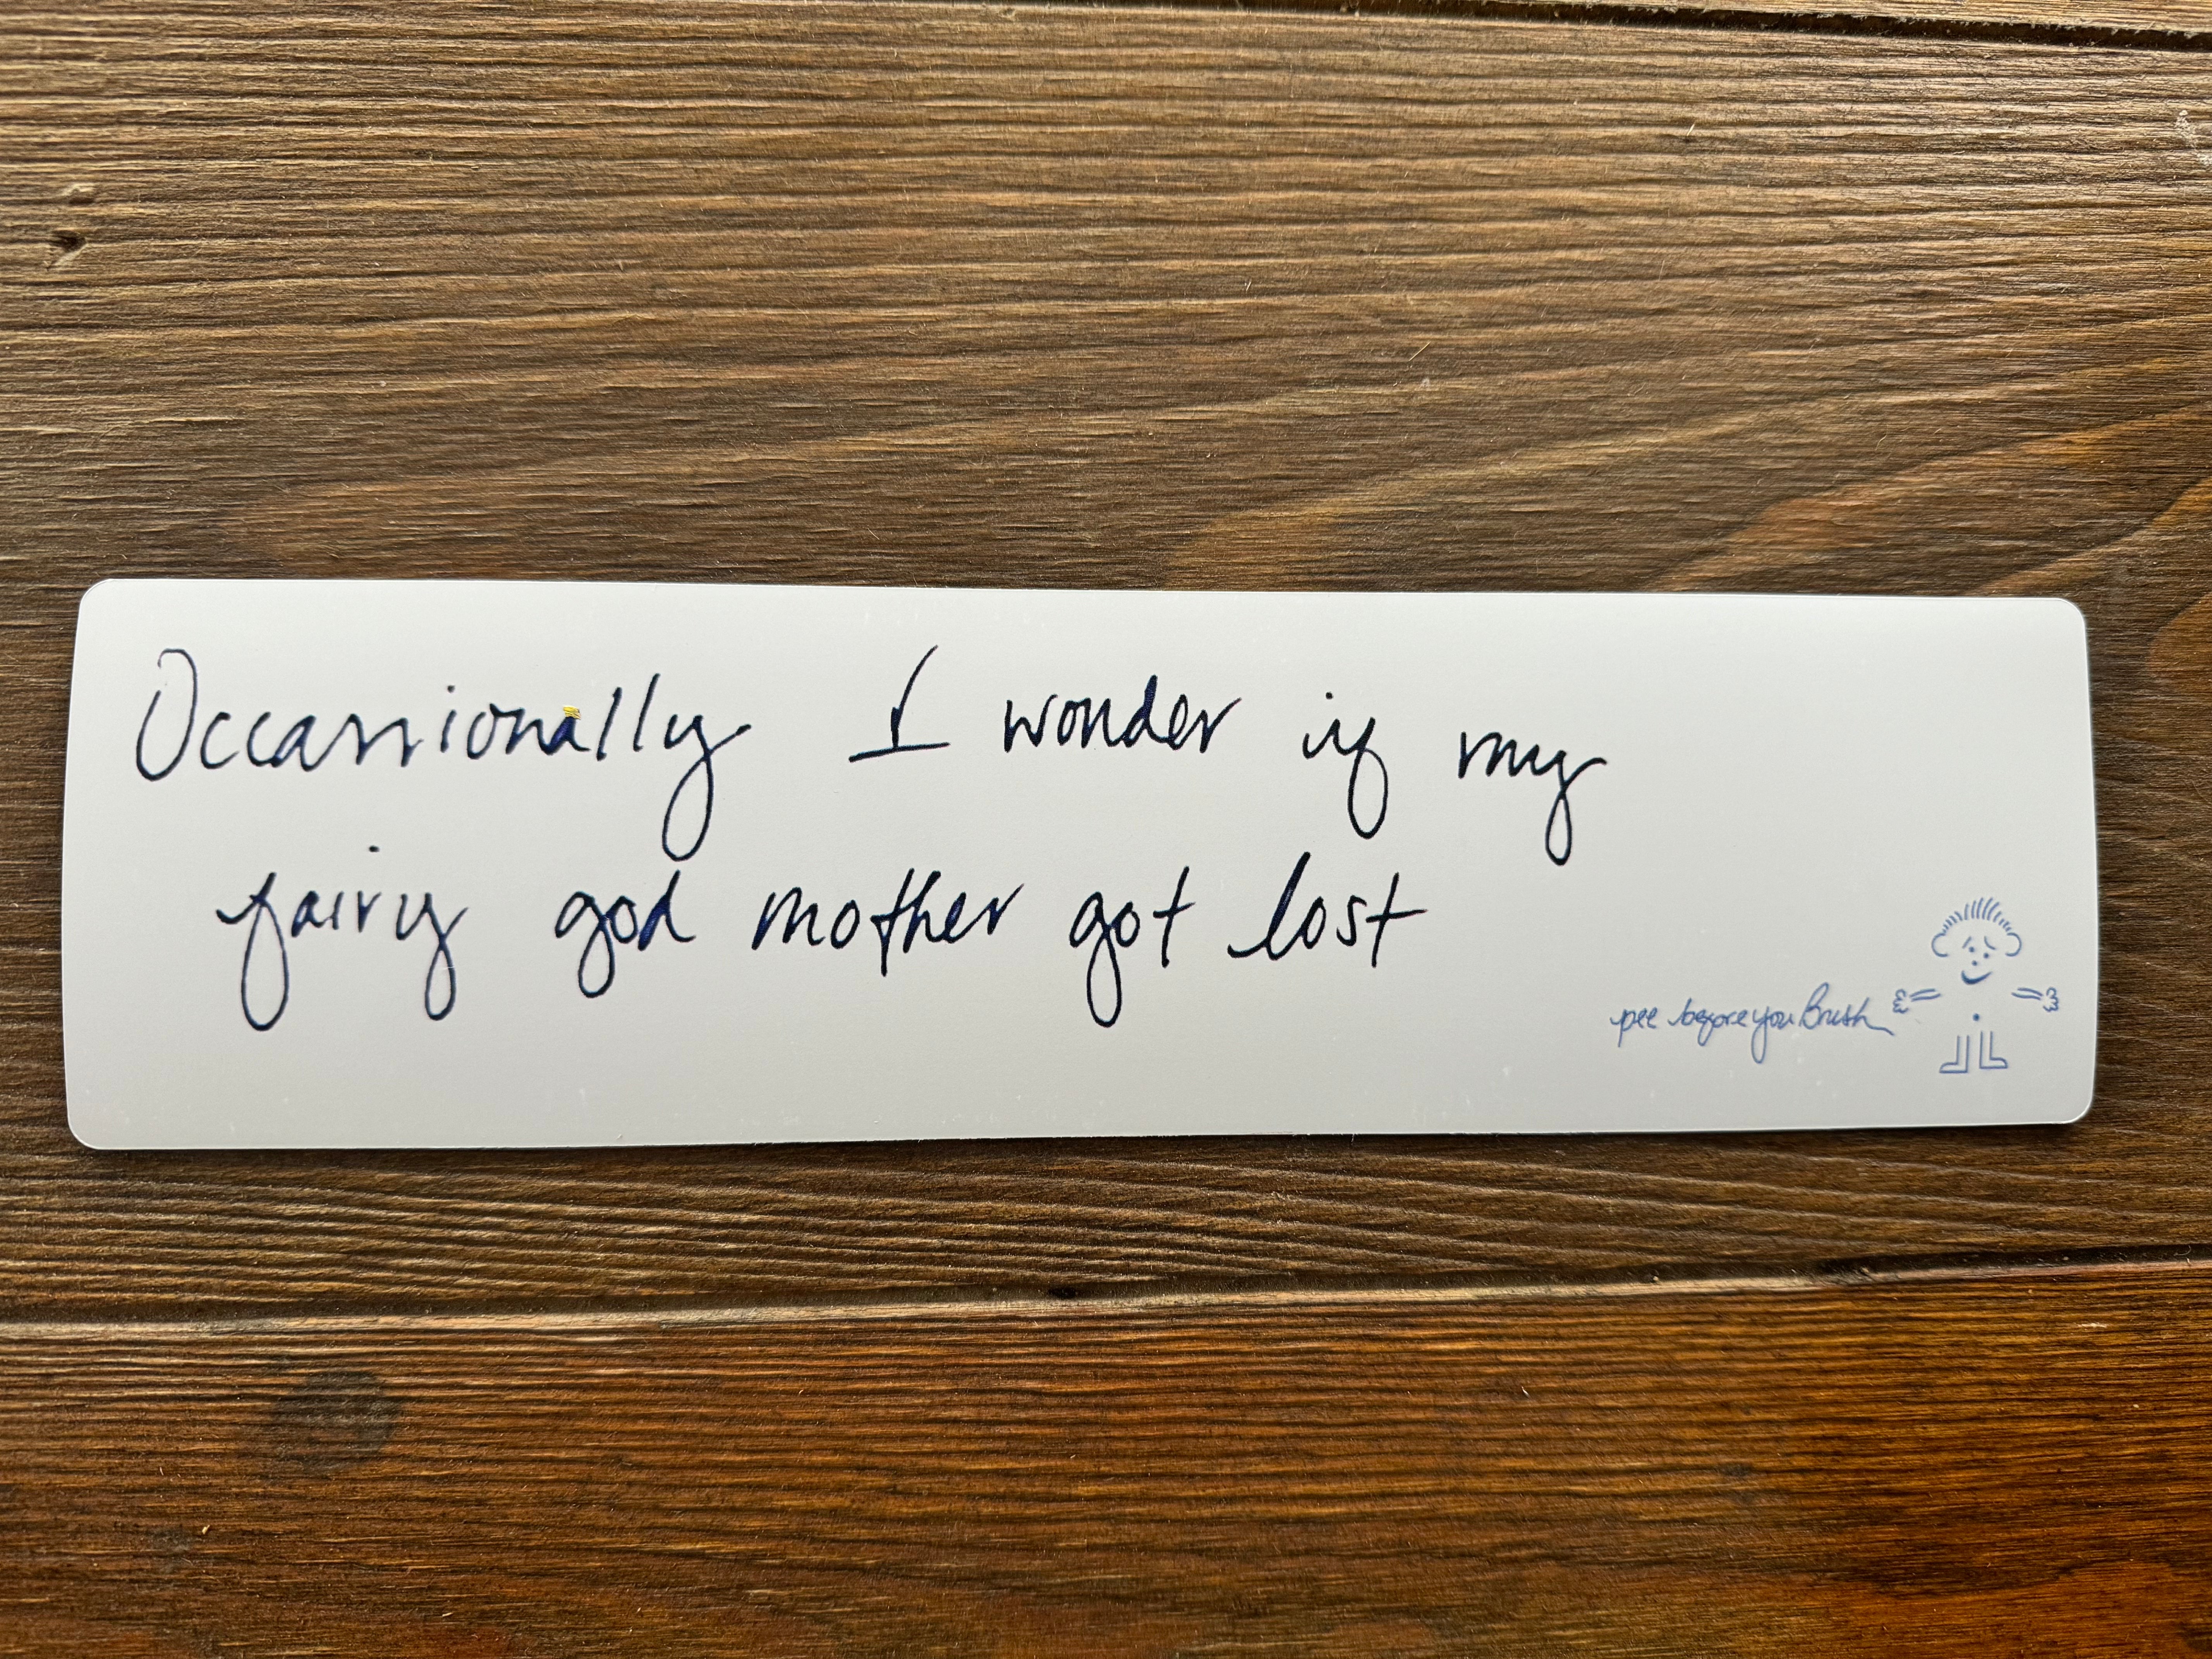 Occassionally I wonder if my
fairy god mother got lost
pee before you Brush